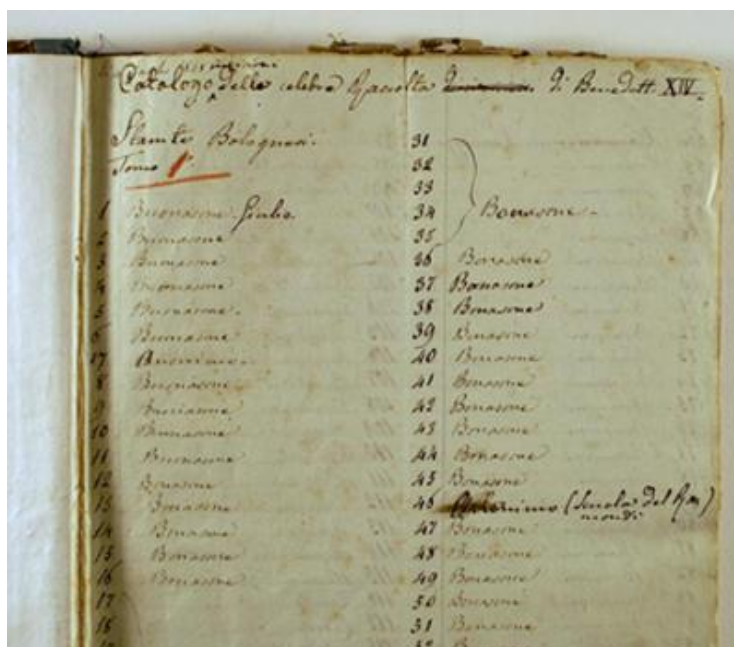 Catalogo della celebre Raccolta di Benedett. XIV.
Stampe Bolognesi.
Tomo 1º.
1 Buonasone Giulio.
2 Buonasone
3 Buonasone
4 Buonasone
5 Buonasone.
6 Buonasone
7
8 Buonasone
9 Buonasone
10 Buonasone
11 Buonasone
12 Bonasone
13 Bonasone
14 Bonasone
15 Bonasone
16 Bonasone
17
18
31
32
33
34 Bonasone
35
36 Bonasone
37 Bonasone
38 Bonasone
39 Bonasone
40 Bonasone
41 Bonasone
42 Bonasone
43 Bonasone
44 Bonasone
45 Bonasone
46 (Scuola del Rai
mondi)
47 Bonasone
48 Bonasone
49 Bonasone
50 Bonasone
51 Bonasone
52